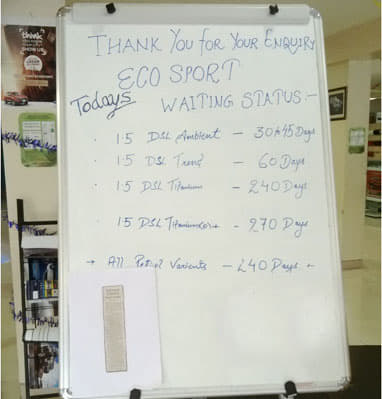 THANK YOU FOR YOUR ENQUIRY
ECO SPORT
Todays WAITING STATUS:-
· 1.5 DSL Ambient - 30to45 Days
· 1.5 DSL Trend - 60 Days
· 1.5 DSL Titanium - 240 Days
15 DSL Titanium - 270 Days
→ All Petrol Varients - 240 Days
think